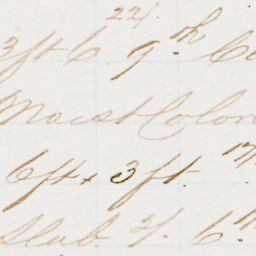 22/.
3ft 6 9.th Co
Moist Colon
6ft x 3ft. 17.
Slab. 2/. 6.th